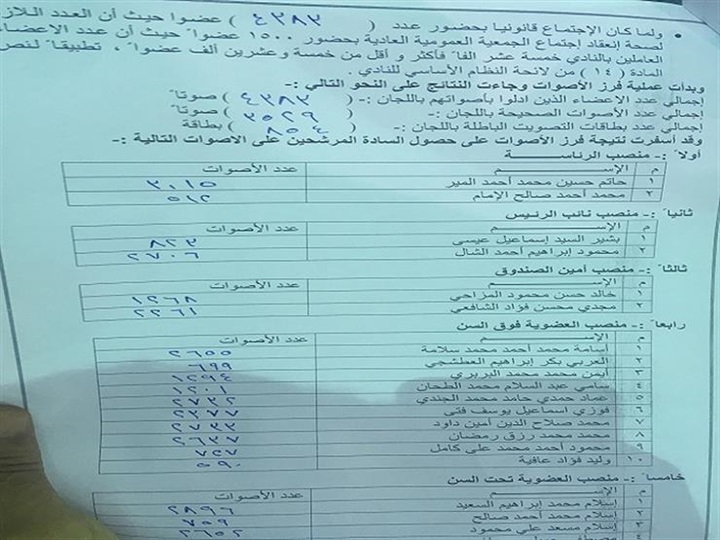 ولما كان الإجتماع قانونيا بحضور عدد ( ٤٣٨٣ ) عضوا حيث أن العدد اللاز
لصحة إنعقاد إجتماع الجمعية العمومية العادية بحضور ١٥٠٠ عضوا حيث أن عدد الاعضاء
العاملين بالنادي خمسة عشر الفا فأكثر و أقل من خمسة وعشرين ألف عضوا ، تطبيقا لنص
المادة ( ١٤ ) من لائحة النظام الأساسي للنادي .
وبدأت عملية فرز الأصوات وجاءت النتائج على النحو التالي :-
إجمالي عدد الاعضاء الذين ادلوا بأصواتهم باللجان :- ( ٤٣٨٣ ) صوتا
إجمالي عدد الأصوات الصحيحة باللجان :- ( ٣٥٢٩ ) صوتا
إجمالي عدد بطاقات التصويت الباطلة باللجان :- ( ٨٥٤ ) بطاقة
وقد أسفرت نتيجة فرز الأصوات على حصول السادة المرشحين على الاصوات التالية :-
أولا :- منصب الرئاســـــــة
م الإســـــــم عدد الأصوات
١ حاتم حسين محمد أحمد المير ٣٠١٥
٢ محمد أحمد صالح الإمام ٥١٢
ثانيا :- منصب نائب الرئيس
م الإســـــــم عدد الأصوات
١ بشير السيد إسماعيل عيسى ٨٢٣
٢ محمود إبراهيم أحمد الشال ٢٧٠٦
ثالثا :- منصب أمين الصندوق
م الإســـــــم عدد الأصوات
١ خالد حسن محمود المزاحي ١٢٦٨
٢ مجدي محسن فؤاد الشافعي ٢٢٦١
رابعا :- منصب العضوية فوق السن
م الإســـــــم عدد الأصوات
١ أسامة محمد أحمد محمد سلامة ٢٦٥٥
٢ العربي بكر إبراهيم العطشجي ٦٩٩
٣ أيمن محمد محمد البربري ١٢٩٤
٤ سامي عبد السلام محمد الطحان ١٢٠١
٥ عماد حمدي حامد محمد الجندي ٢٧٣٢
٦ فوزي اسماعيل يوسف فتى ٢٣٧٧
٧ محمد صلاح الدين أمين داود ٢٧٣٣
٨ محمد محمد رزق رمضان ٢٦٣٧
٩ محمود أحمد محمد على كامل ٧٢٧
١٠ وليد فؤاد عافية ٥٩٠
خامسا :- منصب العضوية تحت السن
م الإســـــــم عدد الأصوات
١ إسلام محمد إبراهيم السعيد ٢٨٩٦
٢ إسلام محمد أحمد صالح ٧٥٩
٣ إسلام مسعد على محمود ٢٦٥٢
٤